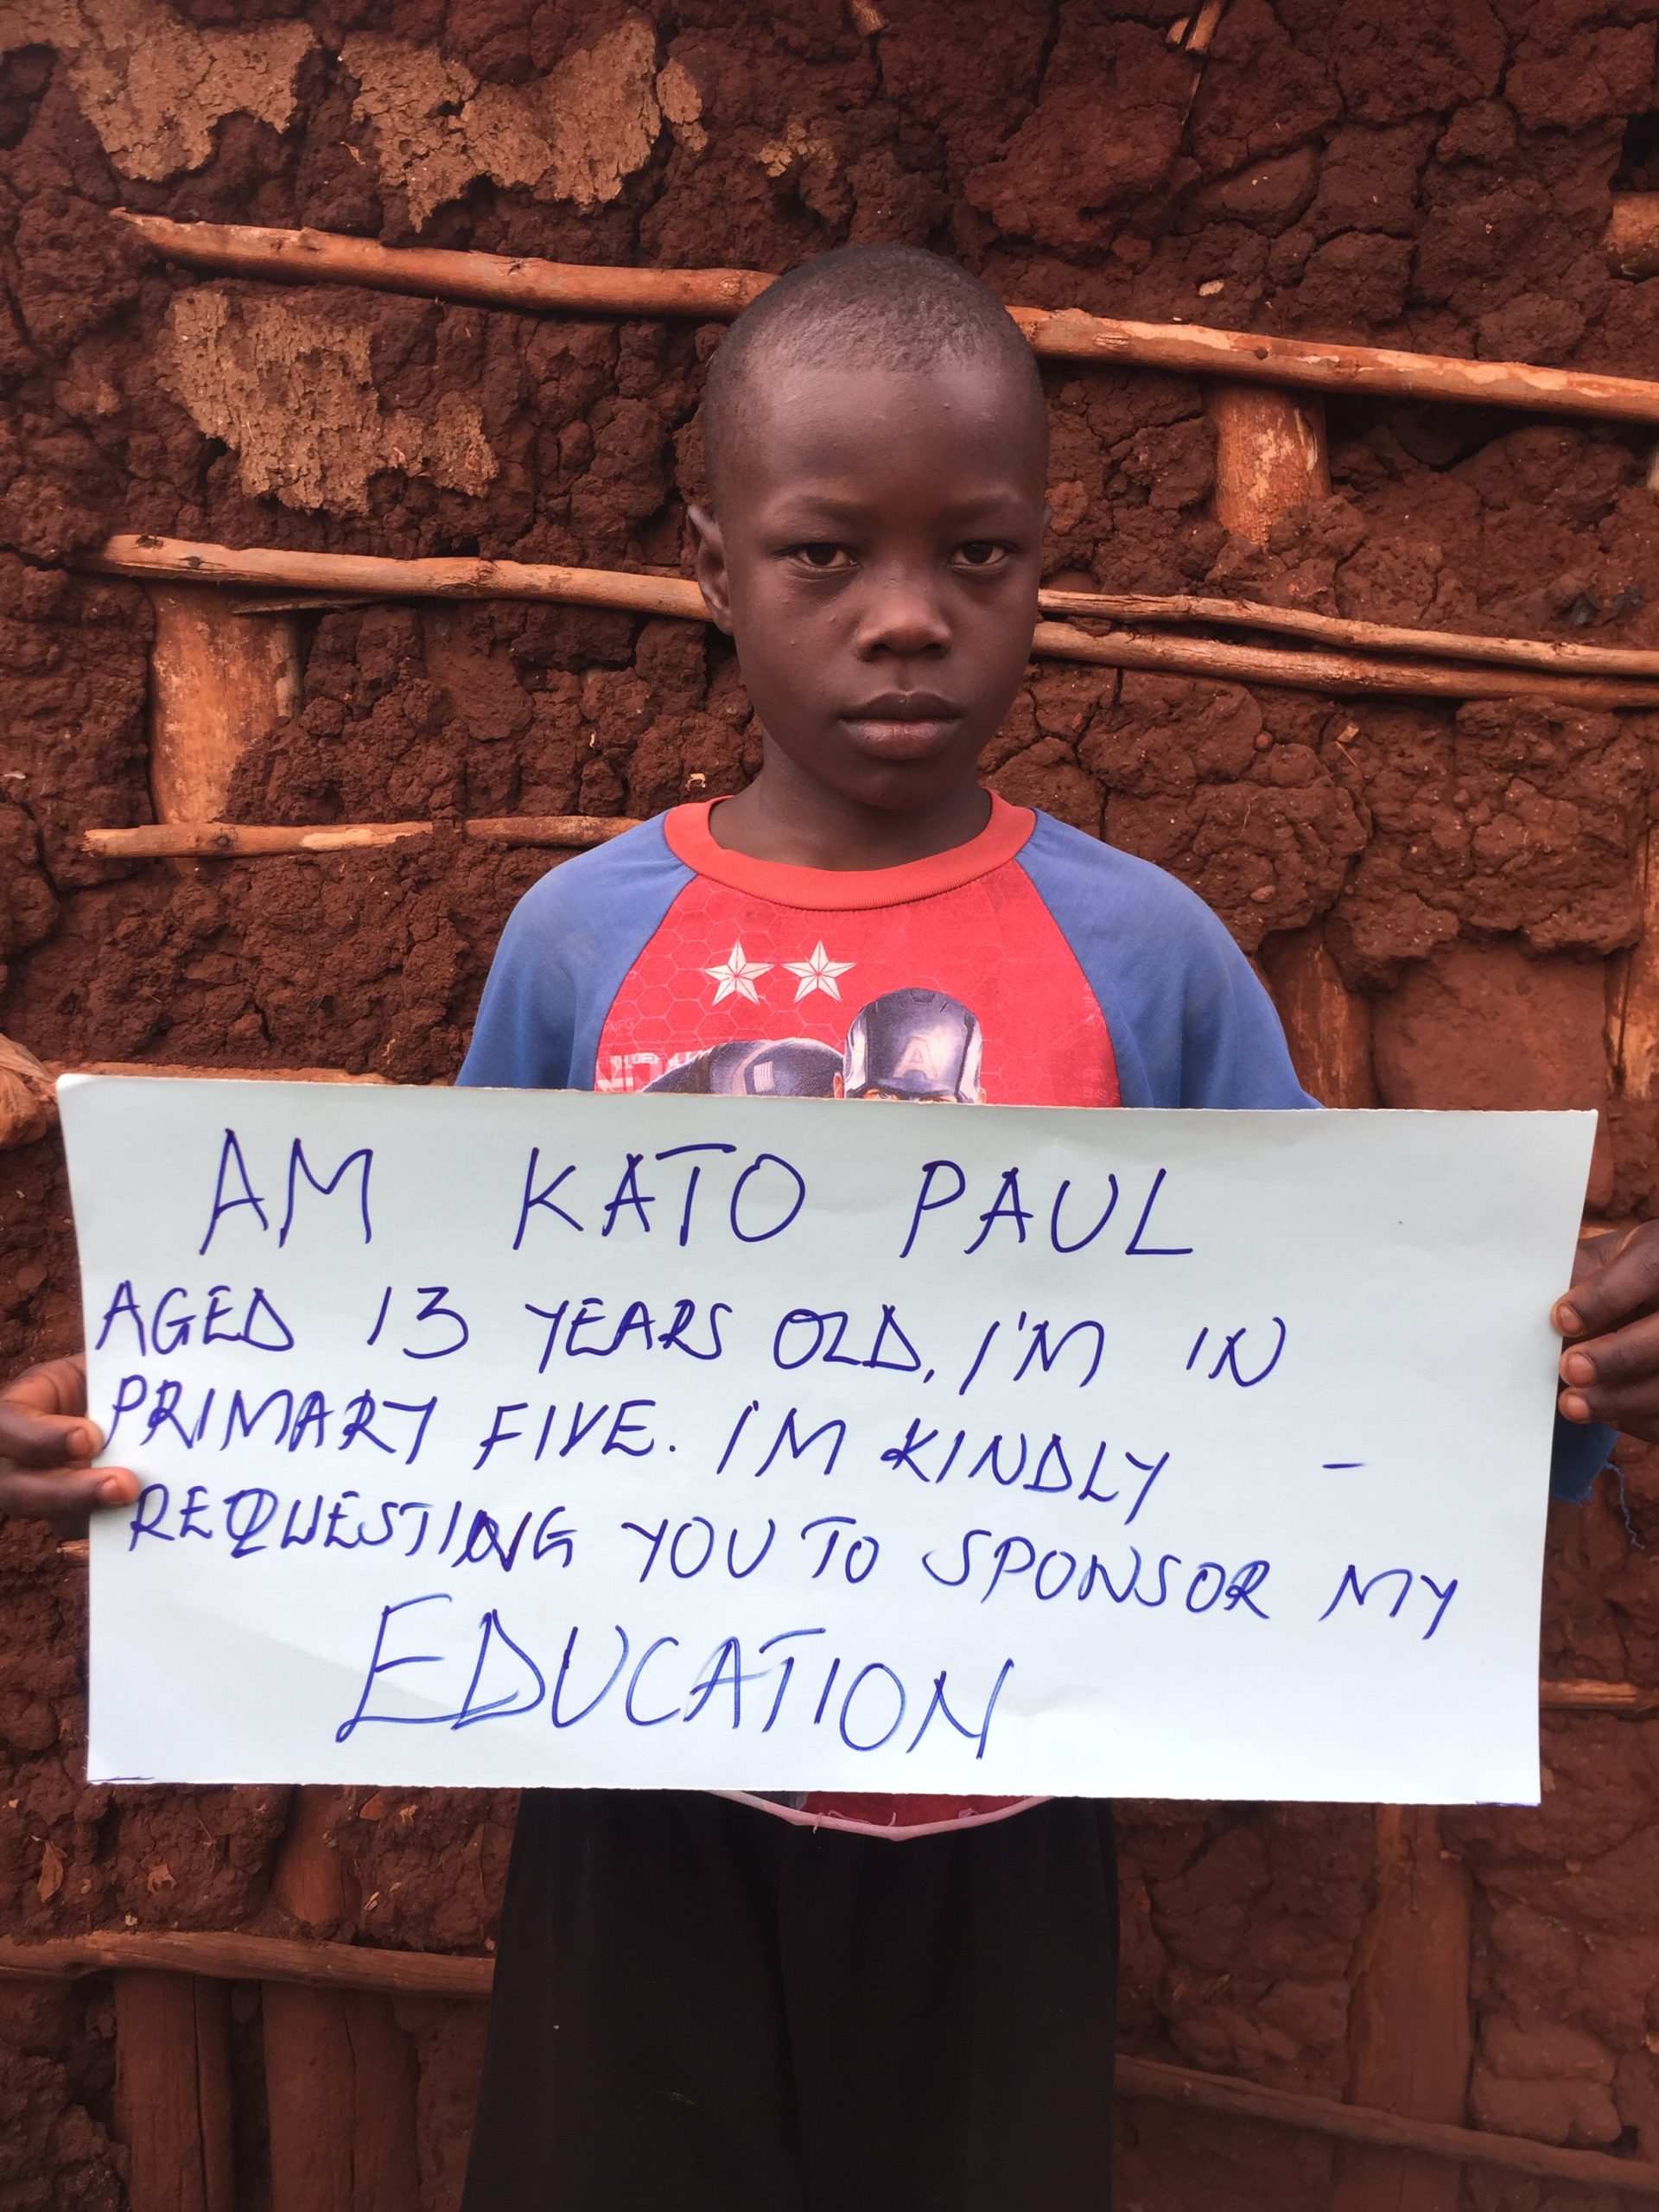 AM KATO PAUL
AGED 13 YEARS OLD, I'M IN
PRIMARY FIVE. I'M KINDLY -
REQUESTING YOU TO SPONSOR MY
EDUCATION
A